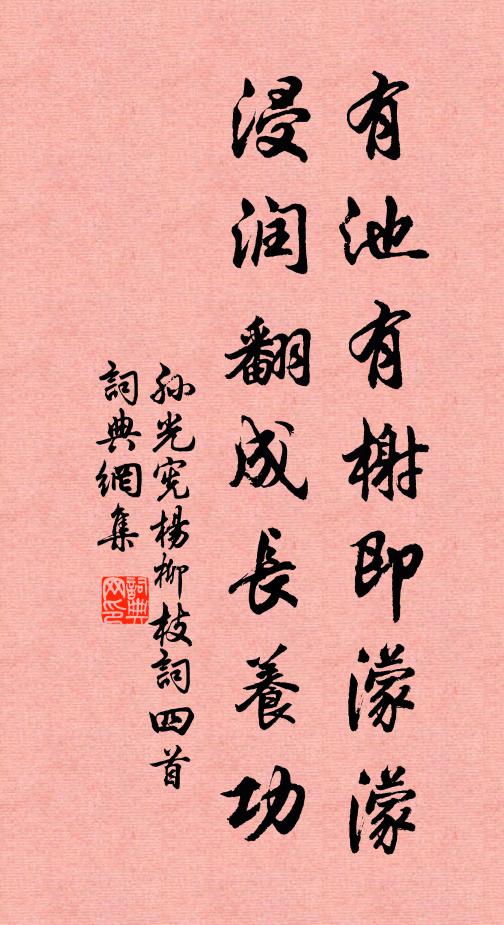 有池有榭即濛濛
浸润翻成長養功
孙光宪楊柳枝詞四首
詞典網集
詞典网印